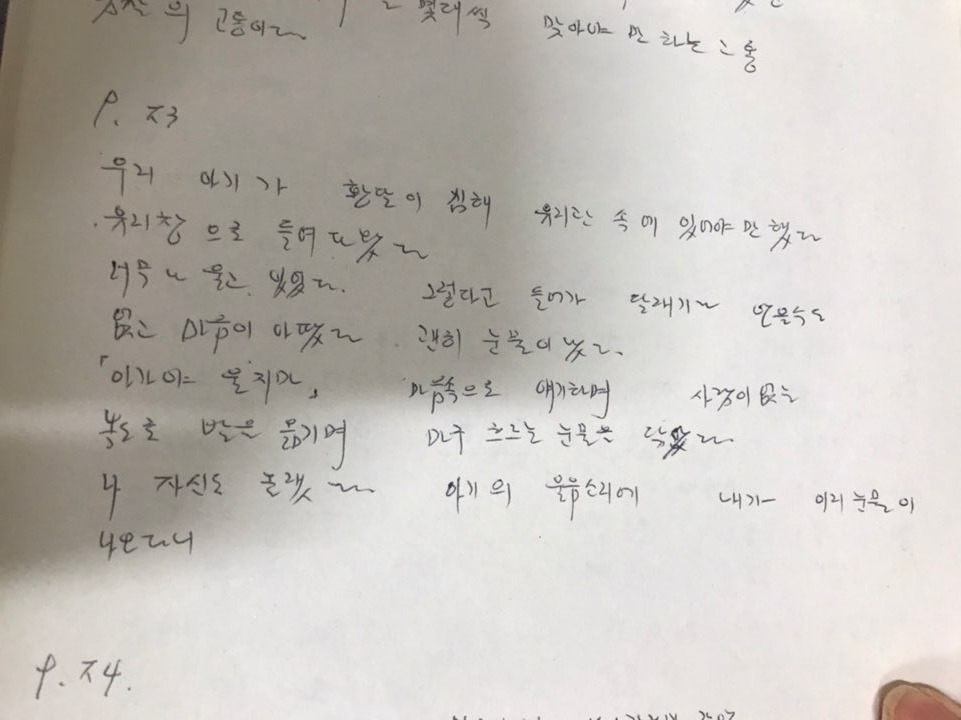 의 고통이다 몇대씩 맞아야 만 하는 고통
P. 53
우리 아기가 황달이 심해 유리관 속에 있어야만 했다
유리창으로 들여다 봤다
너무나 울고 있었다. 그렇다고 들어가 달래기는
없고 마음이 아팠다 괜히 눈물이 났다.
「아가야 울지마」 마음속으로 얘기하며 사람이 없는
복도로 발을 옮기며 마구 흐르는 눈물을 닦았다
나 자신도 놀랬다 아기의 울음소리에 내가 이리 눈물이
나오다니
P. 54.